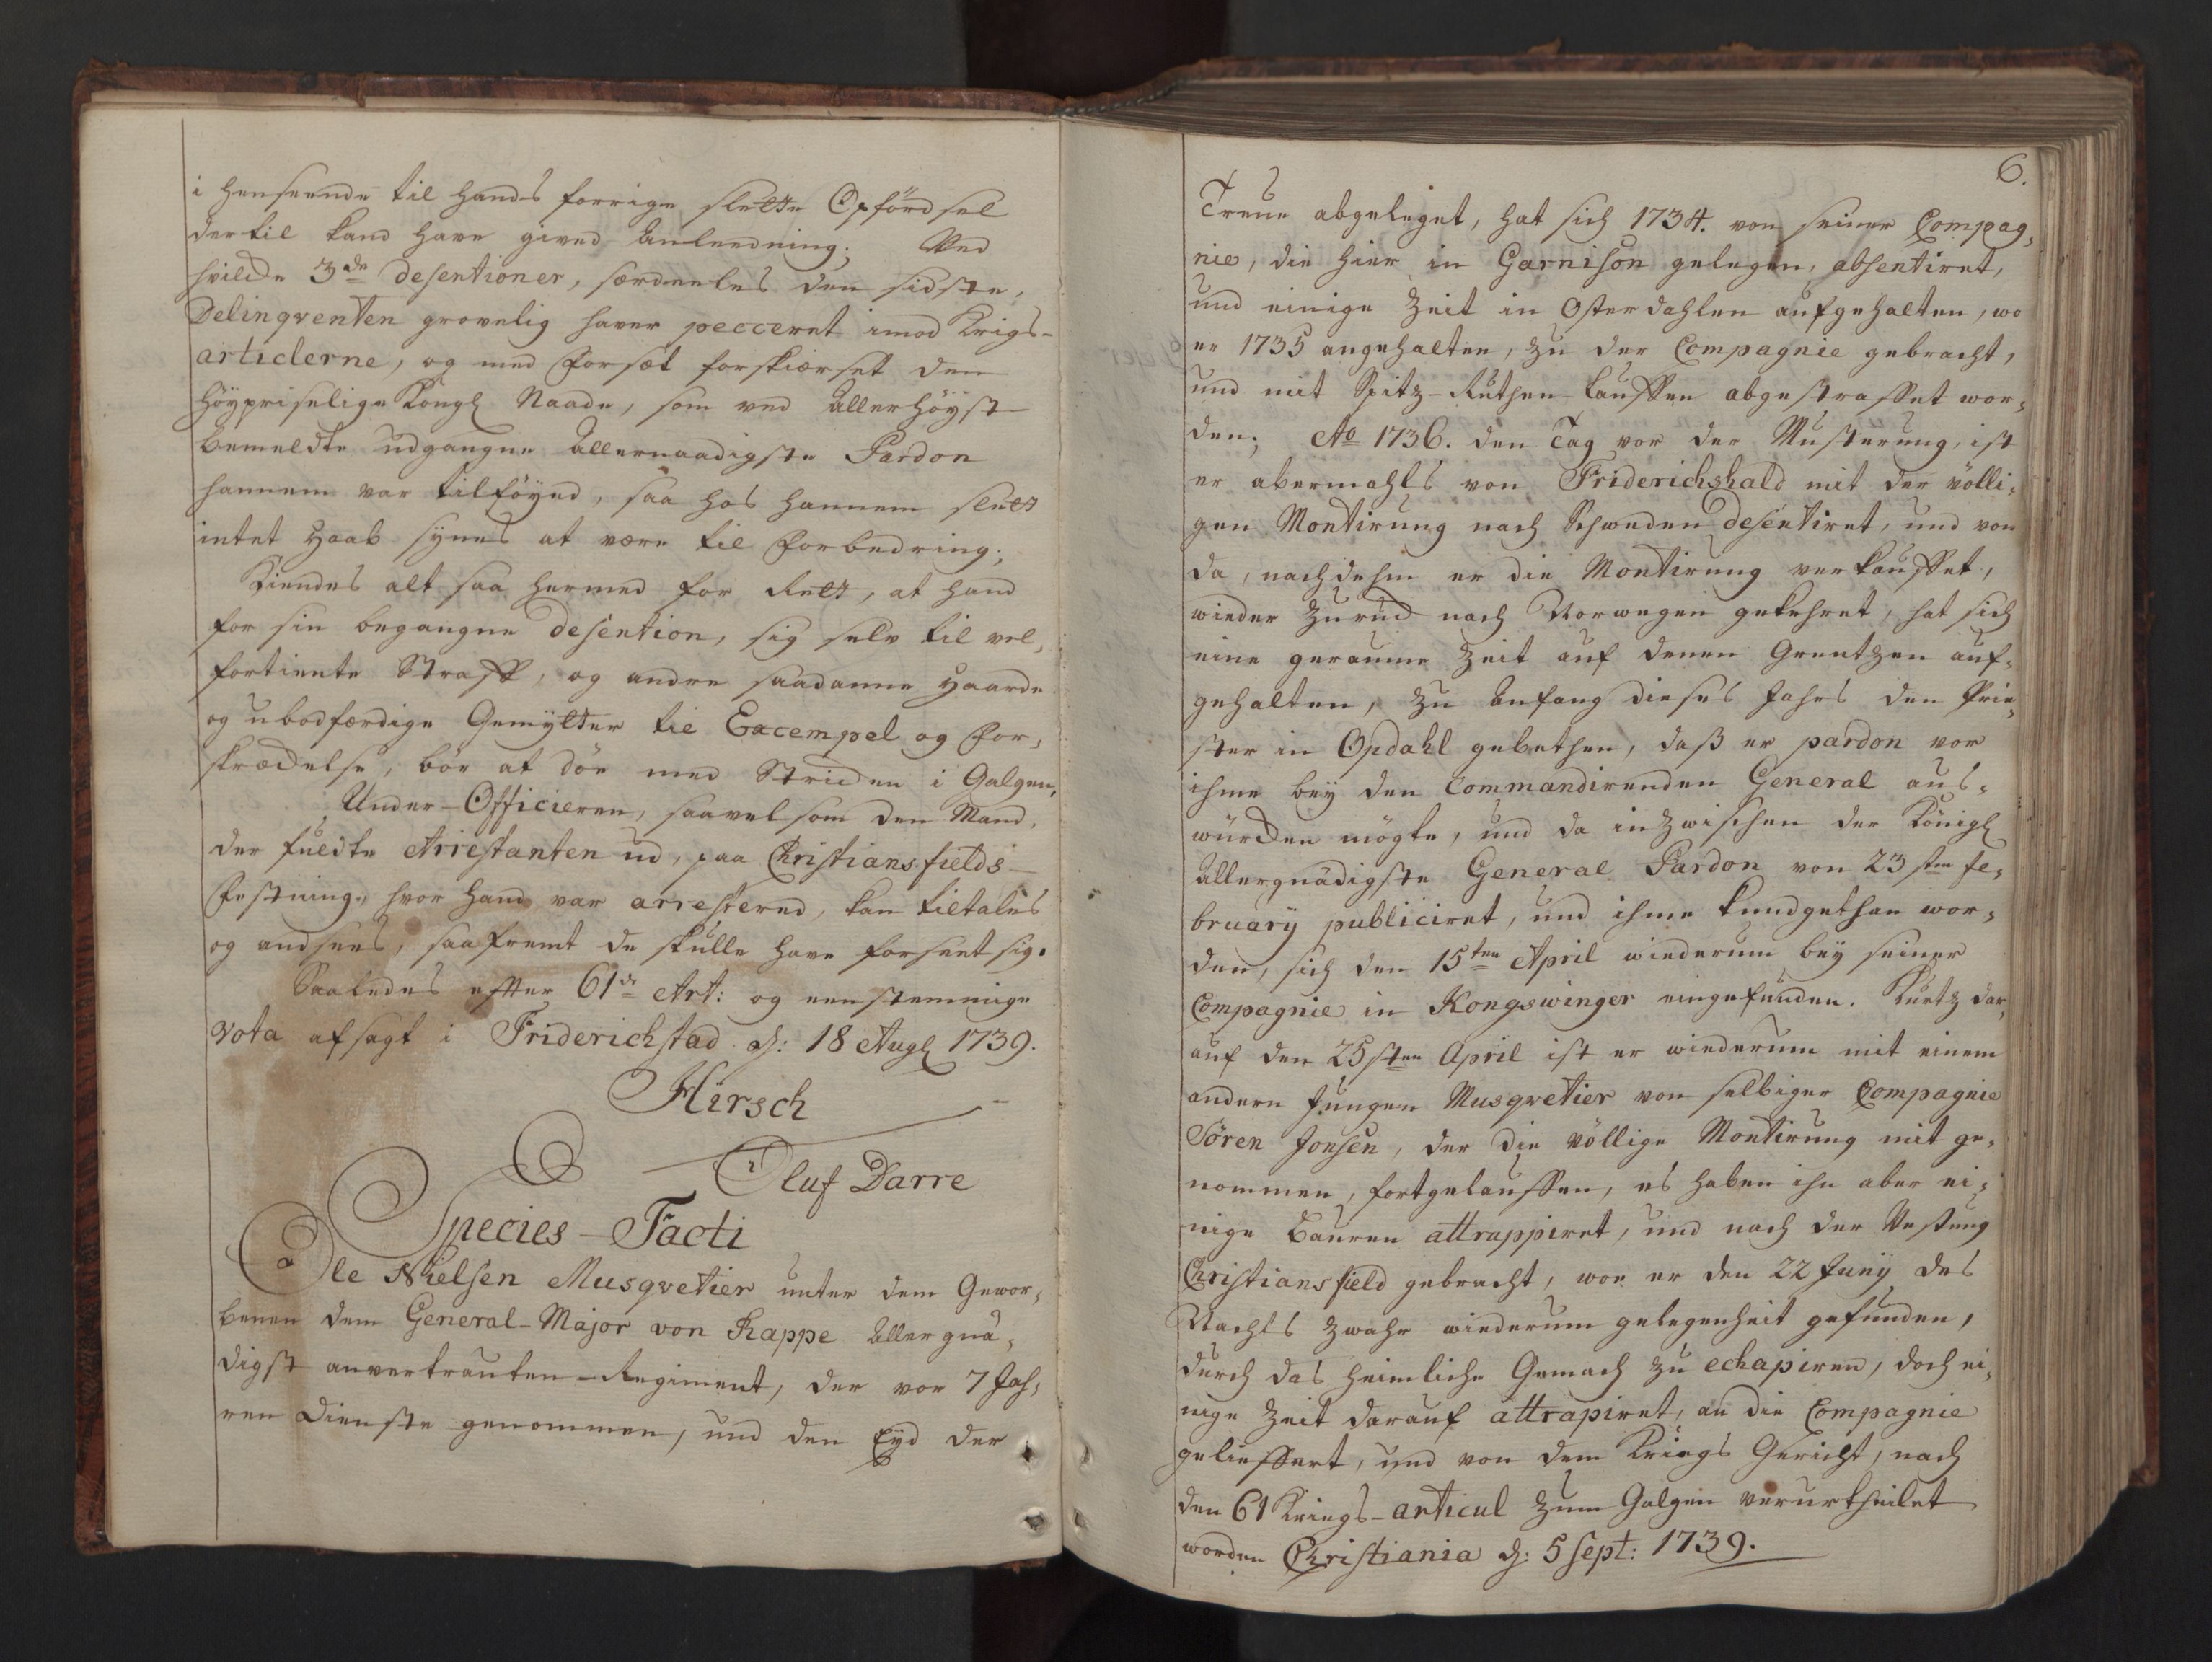 i henseende til hands forrige slette Opfördsel
dertil kand have gived Anleedning; Ved
hvilcke 3de desertioner, særdeeles den sidste,
Delinqventen grovelig haver pecceret imod Krigs-
articlerne, og med Forsæt forskiærset den
höypriselige Kongl Naade, som ved Allerhöyst-
bemeldte udgangne Allernaadigste Pardon
hannem var tilföyed, saa hos hannem slet
intet Haab synes at være til Forbedring;
Kiendes alt saa hermed for Rett, at hand
for sin begangne desertion, sig selv til vel,
fortiente Straff, og andre saadanne Haarde
og ubodfærdige Gemytter til Excempel og For,
skræckelse, bör at döe med Stricken i Galgen,
Under-Officieren, saavelsom den Mand,
der fuldte Arrestanten ud, paa Christiansfields-
Festning, hvor hand var arrestered, kan tiltales
og andsees, saafremt de skulle have forseet sig.
Saaledes efter 61de Art: og eenstemmige
Vota afsagt i Friderichstad d: 18 Augl 1739.
Hirsch
Oluf Darre
Species-Facti
Ole Nielsen Musqvetier unter dem Gewor,
benen dem General-Major von Rappe Allergnä,
digst anvertrauten-Regiment, der vor 7 Jah,
ren Dienste genommen, und den Eyd der
6.
Treue abgeleget, hat sich 1734. von seiner Compag,
nie, die hier in Garnison gelegen, absentiret,
und einige Zeit in Osterdahlen aufgehalten, wo
er 1735 angehalten, zu der Compagnie gebracht,
und mit Spitz-Ruthen-Lauffen abgestraffet wor,
den; Ao 1736. den Tag vor der Musterung, ist
er abermahls von Friderichshald mit der völli,
gen Montirung nach Schweden desertiret, und von
da, nachdehm er die Montirung verkauffet,
wieder zurück nach Norwegen gekehret, hat sich
eine geraume Zeit auf denen Grentzen auf,
gehalten, zu Anfang dieses Jahrs den Prie,
ster in Opdahl gebethen, daß er pardon vor
ihme bey den Commandirenden General aus,
würcken mögte, und da inzwischen der Königl
Allergnädigste General Pardon von 23sten fe,
bruary publiciret, und ihme kundgethan wor,
den, sich den 15ten April wiederum bey seiner
Compagnie in Kongswinger eingefunden. Kurtz dar,
auf den 25sten April ist er wiederum mit einem
andern Jungen Musqvetier von selbiger Compagnie
Sören Jonsen, der die völlige Montirung mit ge,
nommen, fortgelauffen, es haben ihn aber ei,
nige Bauren attrappiret, und nach der Vestung
Christiansfield gebracht, wor er den 22 Juny des
Nachts zwahr wiederum gelegenheit gefunden,
durch das heimliche Gemach zu echapiren, doch ei,
nige Zeit darauf attrapiret, an die Compagnie
gelieffert, und von dem Kriegs Gericht, nach
den 61 Kriegs-articul zum Galgen verurtheilet
worden Christiania d: 5 Sept: 1739.